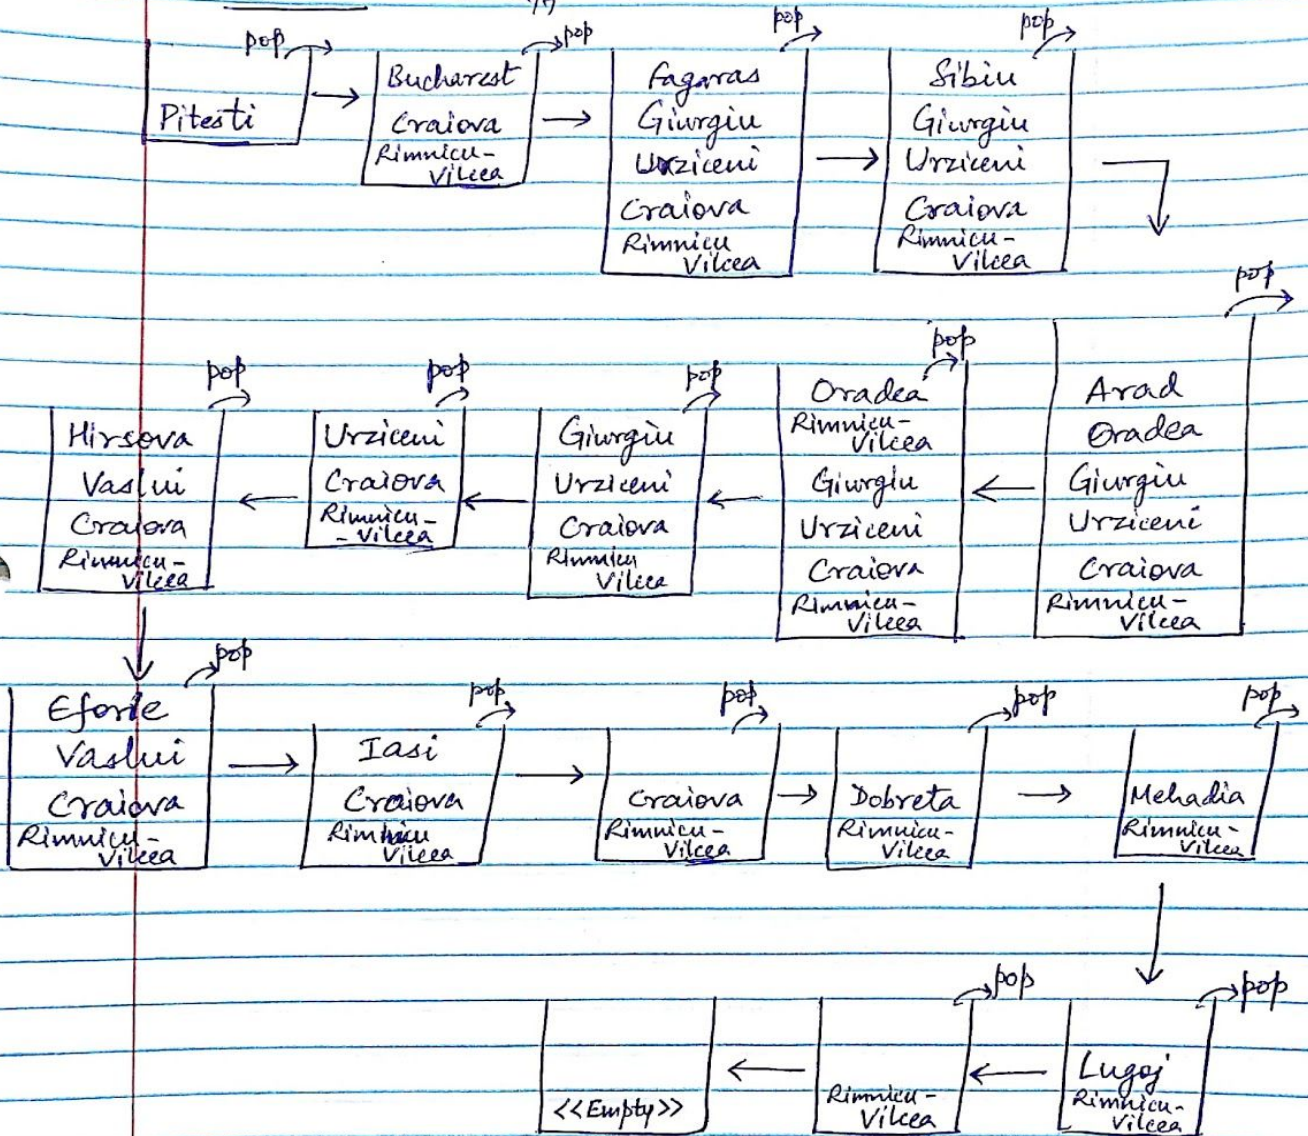 pop
Pitesti
pop
Bucharest
Craiova
Rimnicu-
Vilcea
pop
Fagaras
Giurgiu
Urziceni
Craiova
Rimnicu
Vilcea
pop
Sibiu
Giurgiu
Urziceni
Craiova
Rimnicu-
Vilcea
pop
Hirsova
Vaslui
Craiova
Rimnicu-
Vilcea
pop
Urziceni
Craiova
Rimnicu-
-Vilcea
pop
Giurgiu
Urziceni
Craiova
Rimnicu
Vilcea
pop
Oradea
Rimnicu-
Vilcea
Giurgiu
Urziceni
Craiova
Rimnicu-
Vilcea
pop
Arad
Oradea
Giurgiu
Urziceni
Craiova
Rimnicu-
Vilcea
pop
Eforie
Vaslui
Craiova
Rimnicu-
Vilcea
pop
Iasi
Craiova
Rimnicu
Vilcea
pop
Craiova
Rimnicu-
Vilcea
pop
Dobreta
Rimnicu-
Vilcea
pop
Mehadia
Rimnicu-
Vilcea
<<Empty>>
pop
Rimnicu-
Vilcea
pop
Lugoj
Rimnicu-
Vilcea